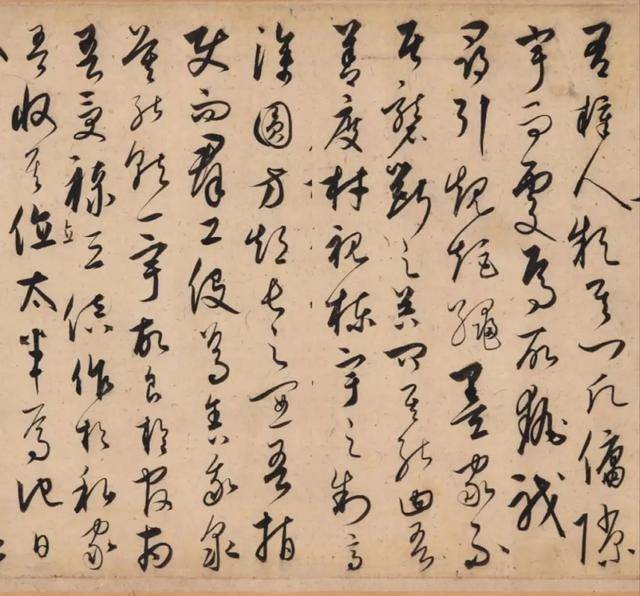 有梓人款其门願傭隙
宇而處焉所職
尋引規矩繩墨家不
居礱斲之器問其能曰吾
善度材視棟宇之制高
深圓方短長之宜吾指
使而群工役焉舍我衆
莫能就一宇故食於官府
吾受禄三倍作於私家
吾收其值太半焉他日